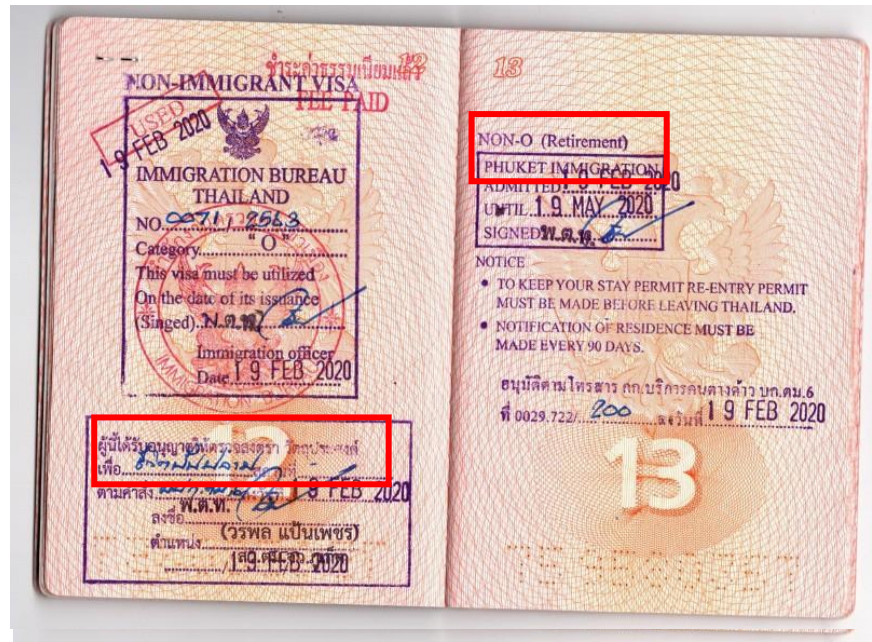 ชำระค่าธรรมเนียมแล้ว
NON-IMMIGRANT VISA
FEE PAID
USED
19 FEB 2020
IMMIGRATION BUREAU
THAILAND
NO. 0071/2563
Category "O"
This visa must be utilized
On the date of its issuance
(Singed) พ.ต.ท.
Immigration officer
Date 19 FEB 2020
12
ผู้นี้ได้รับอนุญาตให้ตรวจลงตรา วัตถุประสงค์
เพื่อ
ตามคำสั่ง 19 FEB 2020
พ.ต.ท.
ลงชื่อ
(วรพล แป้นเพชร)
ตำแหน่ง
19 FEB 2020
13
NON-O (Retirement)
PHUKET IMMIGRATION
ADMITTED 19 FEB 2020
UNTIL 19 MAY 2020
SIGNED พ.ต.ท.
NOTICE
• TO KEEP YOUR STAY PERMIT RE-ENTRY PERMIT
MUST BE MADE BEFORE LEAVING THAILAND.
• NOTIFICATION OF RESIDENCE MUST BE
MADE EVERY 90 DAYS.
อนุมัติตามโทรสาร กก.บริการคนต่างด้าว บก.ตม.6
ที่ 0029.722/ 200 ลงวันที่ 19 FEB 2020
13